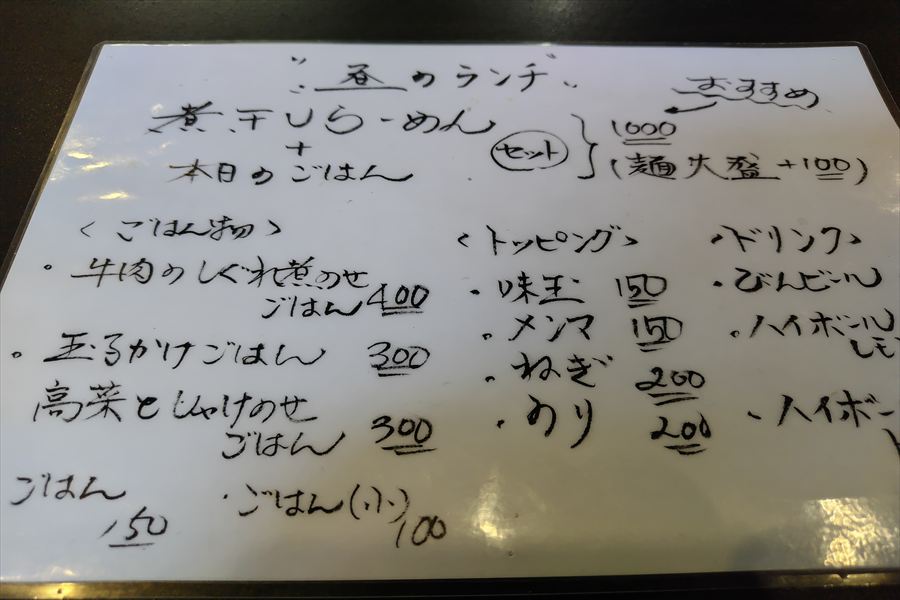 〝昼のランチ〟
おすすめ
煮干しらーめん
+
本日のごはん
セット
1000
(麺大盛+100)
<ごはん物>
・牛肉のしぐれ煮のせ
ごはん 400
・玉子かけごはん 300
高菜としゃけのせ
ごはん 300
ごはん
150
・ごはん(小)
100
<トッピング>
・味玉 150
・メンマ 150
・ねぎ 200
・のり 200
<ドリンク>
・びんビール
・ハイボール
レモ
・ハイボー